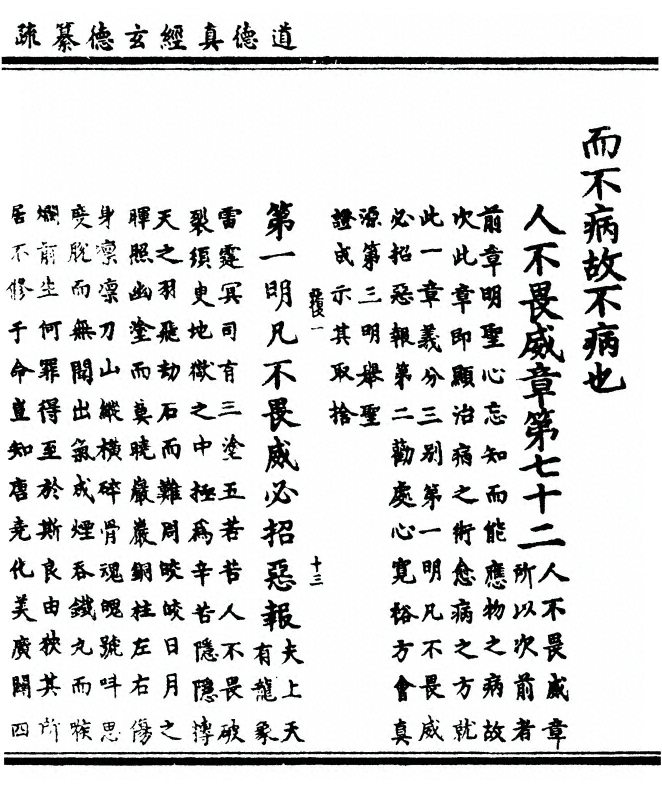 道德真經玄德纂疏
而不病故不病也
人不畏威章第七十二人不畏威章
所以次前者
前章明聖心忘知而能應物之病故
次此章即顯治病之術愈病之方就
此一章義分三別第一明凡不畏威
必招惡報第二勸處心寬裕方會真
源第三明舉聖
證成示其取捨
十三
第一明凡不畏威必招惡報夫上天
有龍象
雷霆冥司有三塗五苦苦人不畏破
裂須臾地獄之中極為辛苦隱隱摶
天之羽飛劫石而難周皎皎日月之
暉照幽塗而莫曉巖巖銅柱左右傷
身凜凜刀山縱橫碎骨魂魄號叫思
變脫而無間出氣成煙吞鐵丸而喉
爛前生何罪得至於斯良由狹其所
居不修于命豈知唐堯化美廣闢四